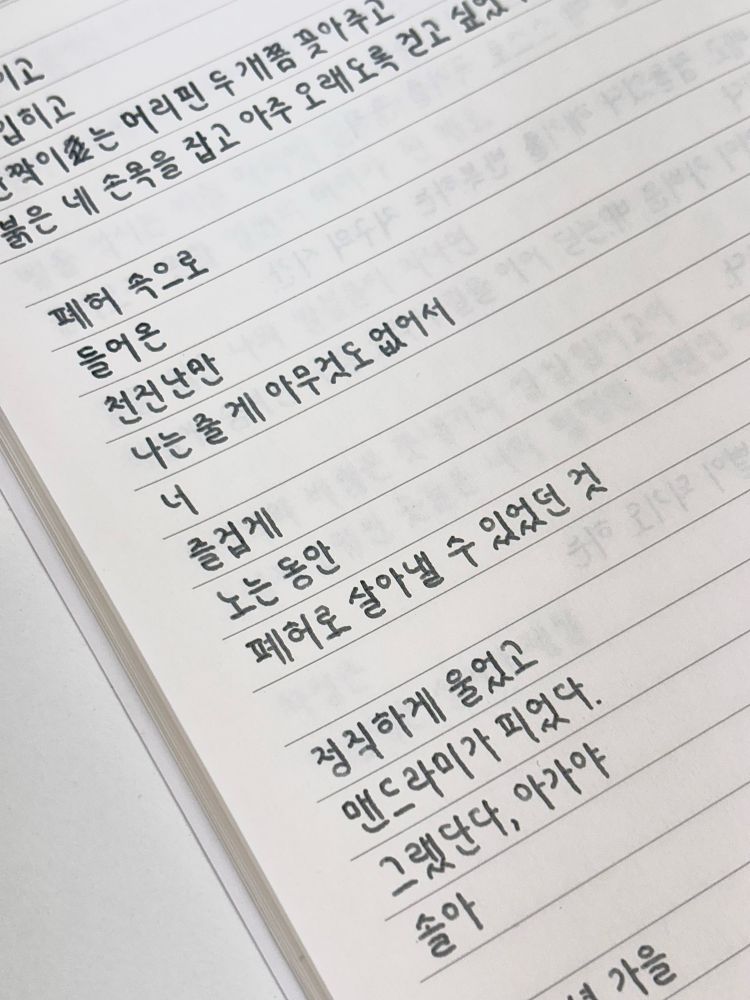 입히고
반짝이는 머리핀 두 개쯤 꽂아주고
붉은 네 손목을 잡고 아주 오래도록 걷고 싶었
폐허 속으로
들어온
천진난만
나는 줄 게 아무것도 없어서
너
즐겁게
노는 동안
폐허로 살아낼 수 있었던 것
정직하게 울었고
맨드라미가 피었다.
그랬단다, 아가야
솔아
가을